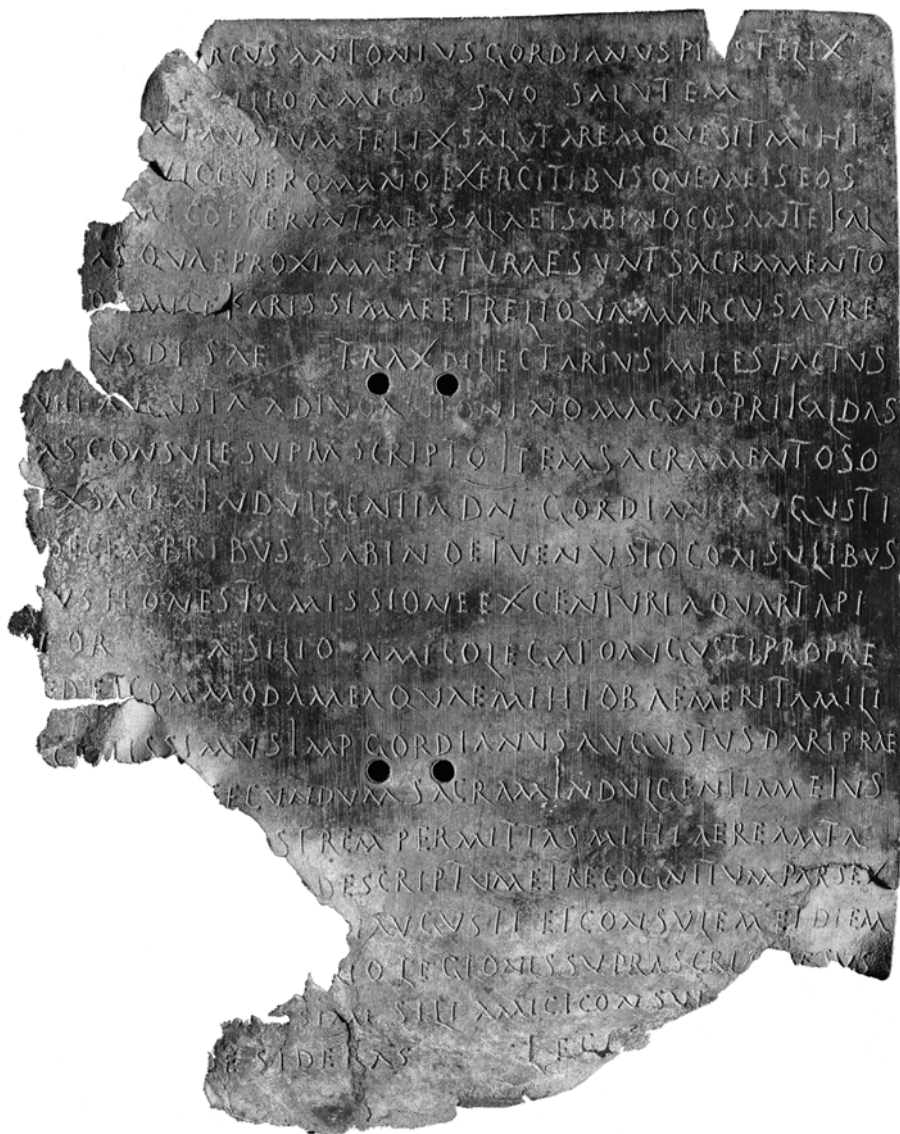 RCUS ANTONIVS GORDIANUS PI S FELIX
AMICO SVO SALUTEM
FAUSTUM FELIX SALUTAREMQUE SIT MIHI
QVE ROMANO EXERCITIBUSQUE MEIS EOS
COEPERUNT MESSALA ET SABINO COS ANTE KAL
AS QVAE PROXIMAE FUTURAE SUNT SACRAMENTO
KARISSIMAE ET RELIQUA MARCUS AVRE
US DISAE TRAX DILECTARIUS MILES FACTUS
A DIVO A NINO MAGNO PRI KALDAS
AS CONSULE SUPRA SCRIPTO ITEM SACRAMENTO SO
EX SACRA INDULGENTIA DN GORDIANI AUGUSTI
DECEMBRIBUS SABINO ET VENUSTO CONSULIBUS
US HONESTA MISSIONE EX CENTURIA QUARTA PI
OR A SILIO AMICO LEGATO AUGUSTI PROPRE
ET COMMODA MEA QUAE MIHI OB AEMERITA MILI
SSIMUS IMP GORDIANUS AUGUSTUS DARI PRAE
ECUNDUM SACRAM INDULGENTIAM EIUS
ST REM PERMITTAS MIHI AEREAM TA
DESCRIPTUM ET RECOGNITUM PARS EX
AUGUSTI ET CONSULEM ET DIEM
LEGIONIS SUPRA SCRI
SILI AMICI CONSUL
DESIDERAS LEG